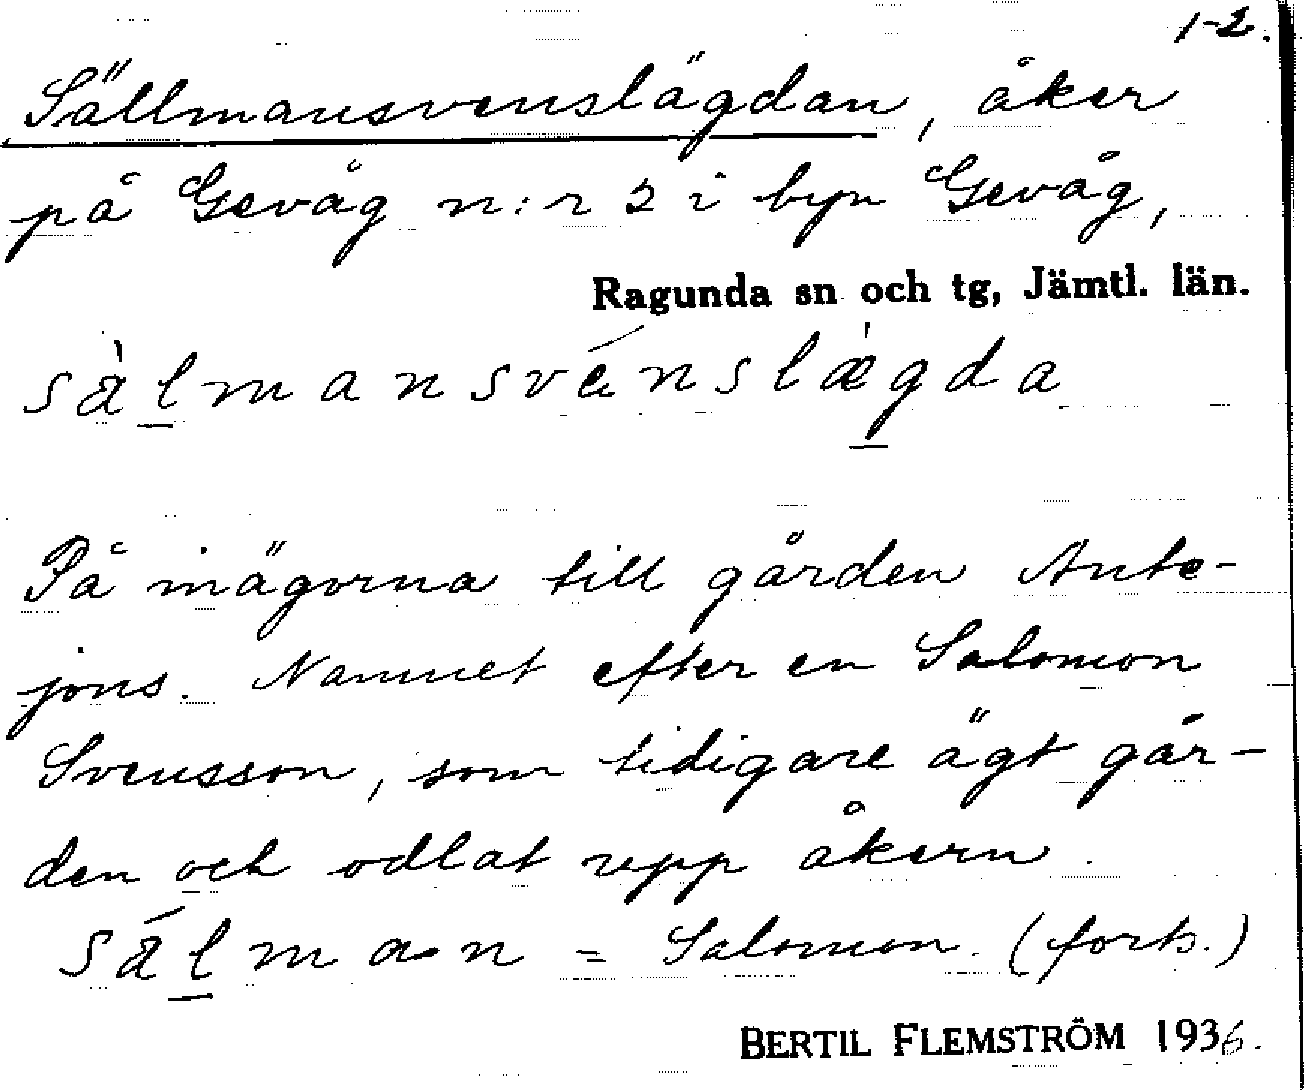 1-2.
Sällmansvenslägdan, åker
på Gevåg n:r 2 i byn Gevåg,
Ragunda sn och tg, Jämtl. län.
sàlmansvénslǽgda
På mägorna till gården Ante-
jons. Namnet efter en Salomon
Svensson, som tidigare ägt går-
den och odlat upp åkern.
sálman = Salomon. (forts.)
BERTIL FLEMSTRÖM 1936.